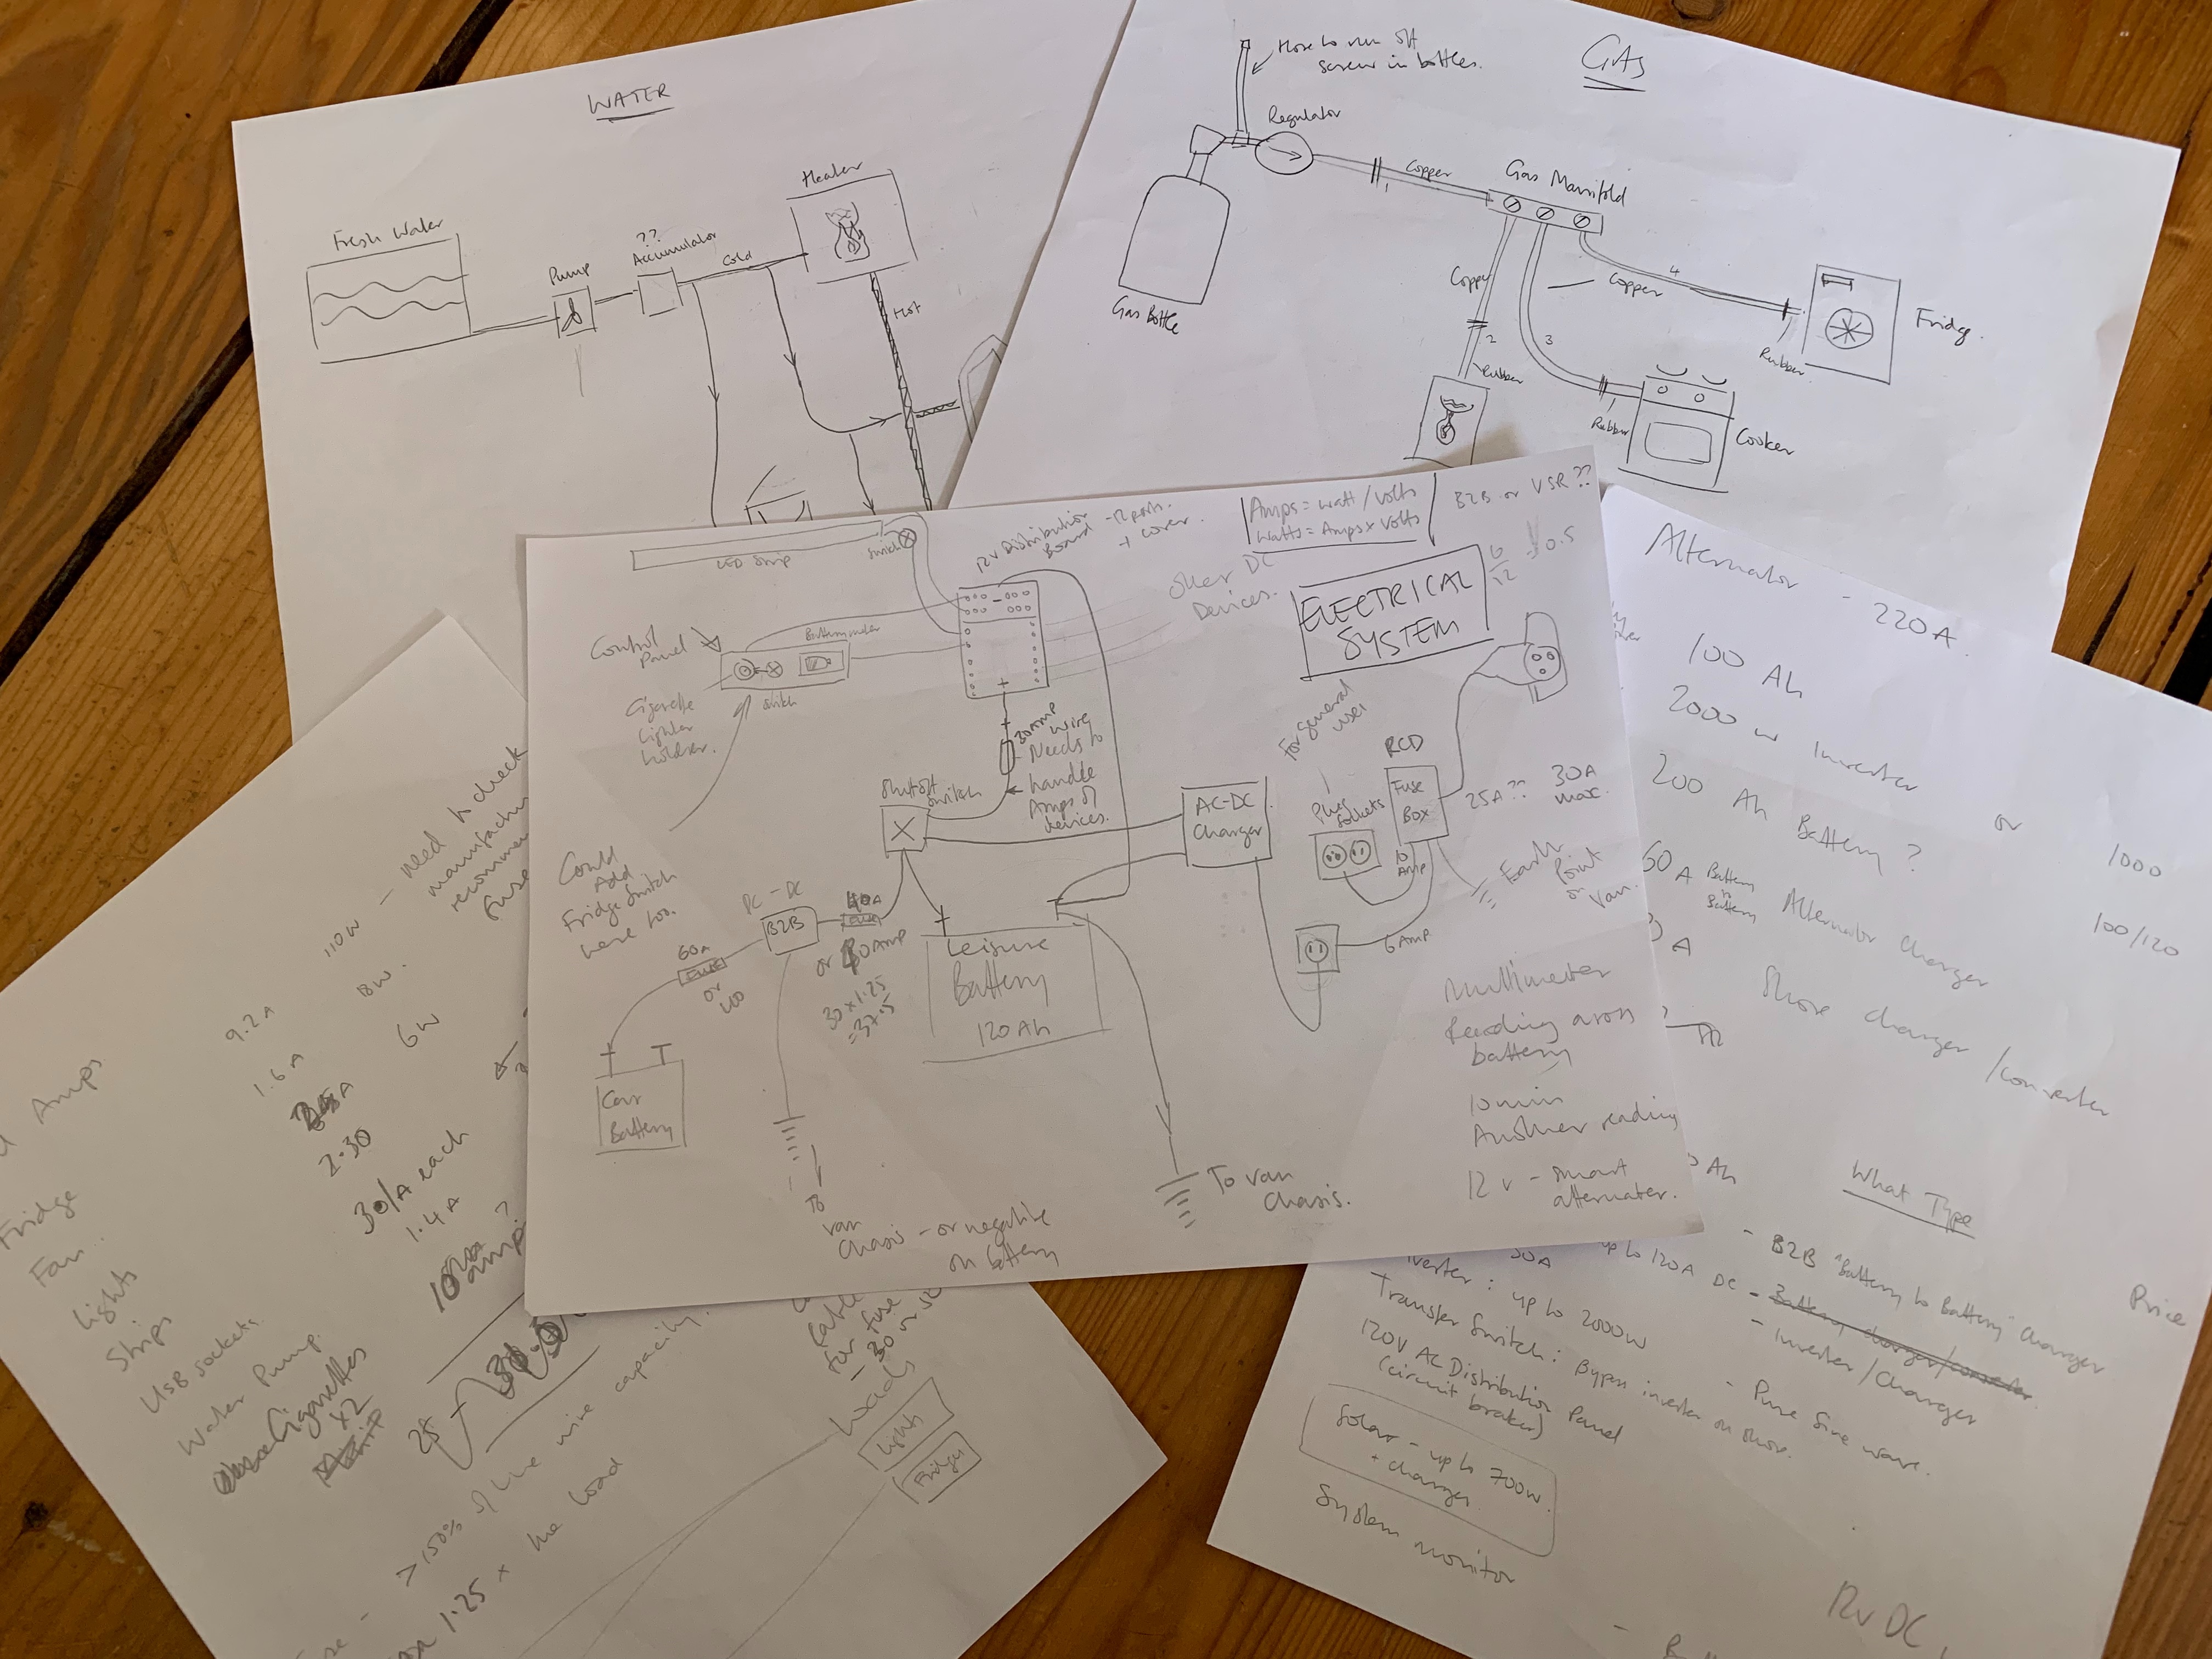 WATER
Fresh Water
Pump
??
Accumulator
Cold
Heater
Hot
GAS
Hose to run off
screw in bottles.
Regulator
Gas Bottle
1
Copper
Gas Manifold
Copper
2
Rubber
3
Copper
4
Rubber
Rubber
Fridge
Cooker
ELECTRICAL
SYSTEM
Amps = watt / volts
Watts = Amps x volts
B2B or VSR ??
6
12
0.5
LED Strip
Switch
12v Distribution
Board
+ cover
Other DC
Devices.
Control
Panel
Battery meter
Cigarette
Lighter
holder.
Switch
Could
Add
Fridge Switch
here too.
30 Amp
wire
- Needs to
handle
Amps of
devices.
Shutoff
Switch
AC-DC
Charger
For general
use
Plug
Sockets
RCD
Fuse
Box
25A ??
30A
max.
10
Amp
6 Amp
Earth
Point
on
Van.
DC - DC
B2B
60A
Fuse
or
100
40A
Fuse
30 x 1.25
= 37.5
Leisure
Battery
120 Ah
Car
Battery
To
van
chasis - or negative
on battery
To van
chasis.
Multimeter
Reading across
battery
10 min
Another reading
12 v - smart
alternater.
Alternator - 220A
100 Ah
2000 w Inverter or 1000
200 Ah Battery ? 100/120
60 A Battery
to
Battery Alternator Charger
Shore charger / converter
Ah
What Type
Price
- B2B "Battery to Battery" Charger
- Inverter / Charger
- Pure Sine wave.
up to 120A DC
verter : up to 2000w
Transfer Switch : Bypass inverter on shore.
120V AC Distribution Panel
(circuit braker)
Solar - up to 700w.
+ charger
System monitor
12v DC
110w - need to check
manufactu
recomme
fuse
Amps
Fridge
9.2 A
Fan
1.6 A
18w.
Lights
6w
Strips
2.30
USB sockets
30/A each
Water Pump.
1.4 A
Cigarettes
x2
25
> 150% of
wire capacity.
1.25 x the load
for fuse
- 30
Loads
Lights
Fridge